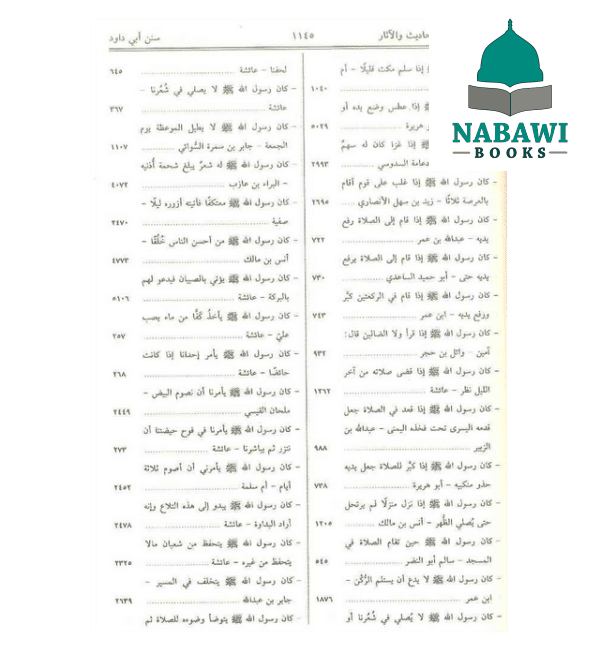 سنن أبي داود ١١٤٥ حاديث والآثار
NABAWI
BOOKS
إذا سلم مكث قليلًا - أم
١٠٤٠
إذا عطس وضع يده أو
و هريرة ٥٠٢٩
إذا غزا كان له سهمٌ
دعامة السدوسي ٢٩٩٣
- كان رسول الله ﷺ إذا غلب على قوم أقام
بالعرصة ثلاثًا - زيد بن سهل الأنصاري ٢٦٩٥
- كان رسول الله ﷺ إذا قام إلى الصلاة رفع
يديه - عبدالله بن عمر ٧٢٢
- كان رسول الله ﷺ إذا قام إلى الصلاة يرفع
يديه حتى - أبو حميد الساعدي ٧٣٠
- كان رسول الله ﷺ إذا قام في الركعتين كبَّر
ورفع يديه - ابن عمر ٧٤٣
- كان رسول الله ﷺ إذا قرأ ولا الضالين قال:
آمين - وائل بن حجر ٩٣٢
- كان رسول الله ﷺ إذا قضى صلاته من آخر
الليل نظر - عائشة ١٢٦٢
- كان رسول الله ﷺ إذا قعد في الصلاة جعل
قدمه اليسرى تحت فخذه اليمنى - عبدالله بن
الزبير ٩٨٨
- كان رسول الله ﷺ إذا كبَّر للصلاة جعل يديه
حذو منكبيه - أبو هريرة ٧٣٨
- كان رسول الله ﷺ إذا نزل منزلًا لم يرتحل
حتى يُصلي الظُّهر - أنس بن مالك ١٢٠٥
- كان رسول الله ﷺ حين تقام الصلاة في
المسجد - سالم أبو النضر ٥٤٥
- كان رسول الله ﷺ لا يدع أن يستلم الرُّكن -
ابن عمر ١٨٧٦
- كان رسول الله ﷺ لا يُصلي في شُعُرنا أو
لحفنا - عائشة ٦٤٥
- كان رسول الله ﷺ لا يصلي في شُعُرنا -
عائشة ٣٦٧
- كان رسول الله ﷺ لا يطيل الموعظة يوم
الجمعة - جابر بن سمرة السُّوائي ١١٠٧
- كان رسول الله ﷺ له شعرٌ يبلغ شحمة أُذنيه
- البراء بن عازب ٤٠٧٢
- كان رسول الله ﷺ معتكفًا فأتيته أزوره ليلًا -
صفية ٢٤٧٠
- كان رسول الله ﷺ من أحسن الناس خُلُقًا -
أنس بن مالك ٤٧٧٣
- كان رسول الله ﷺ يؤتي بالصبيان فيدعو لهم
بالبركة - عائشة ٥١٠٦
- كان رسول الله ﷺ يأخذُ كفًّا من ماء يصب
عليَّ - عائشة ٢٥٧
- كان رسول الله ﷺ يأمر إحدانا إذا كانت
حائضًا - عائشة ٢٦٨
- كان رسول الله ﷺ يأمرنا أن نصوم البيض -
ملحان القيسي ٢٤٤٩
- كان رسول الله ﷺ يأمرنا في فوح حيضتنا أن
نتزر ثم يباشرنا - عائشة ٢٧٣
- كان رسول الله ﷺ يأمرني أن أصوم ثلاثة
أيام - أم سلمة ٢٤٥٢
- كان رسول الله ﷺ يبدو إلى هذه التلاع وإنه
أراد البداوة - عائشة ٢٤٧٨
- كان رسول الله ﷺ يتحفظ من شعبان مالا
يتحفظ من غيره - عائشة ٢٣٢٥
- كان رسول الله ﷺ يتخلف في المسير -
جابر بن عبدالله ٢٦٣٩
- كان رسول الله ﷺ يتوضأ وضوءه للصلاة ثم